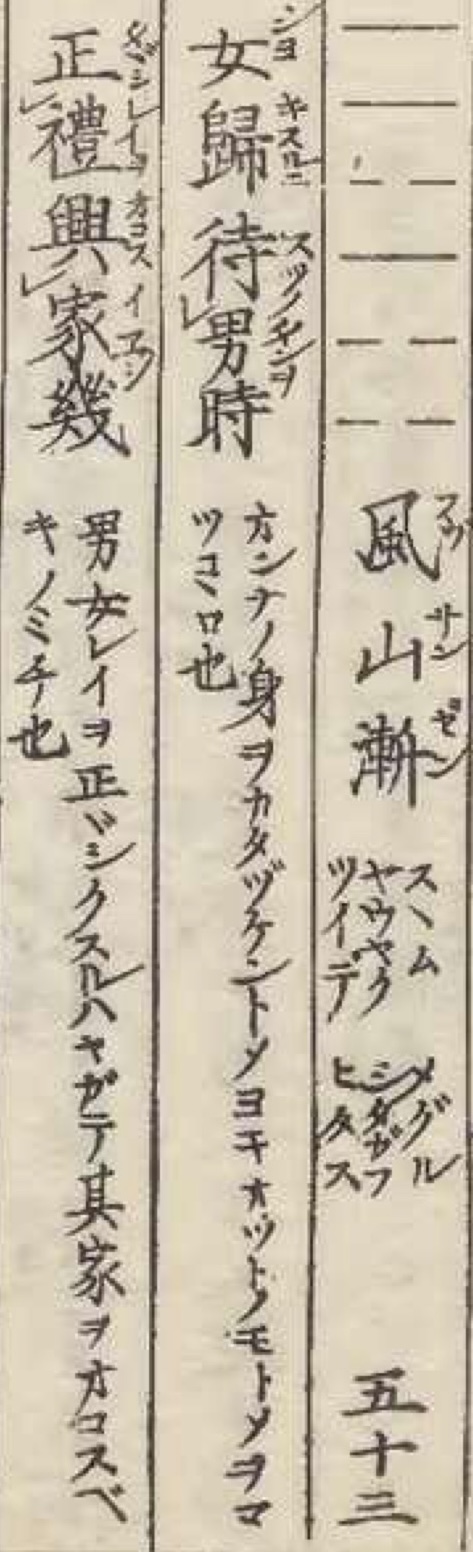 風山漸
フウサンゼン
スヽム
ヤウヤク
ツイデ
メグル
シタガフ
ヒタス
五十三
女歸待男時
ジヨキスルニ
カンナノ身ヲカタヅケントメヨキオツトノモトメヲマ
ツコヽロ也
正禮興家幾
男女レイヲ正シクスルハヤガテ其家ヲオコスベ
キノミチ也